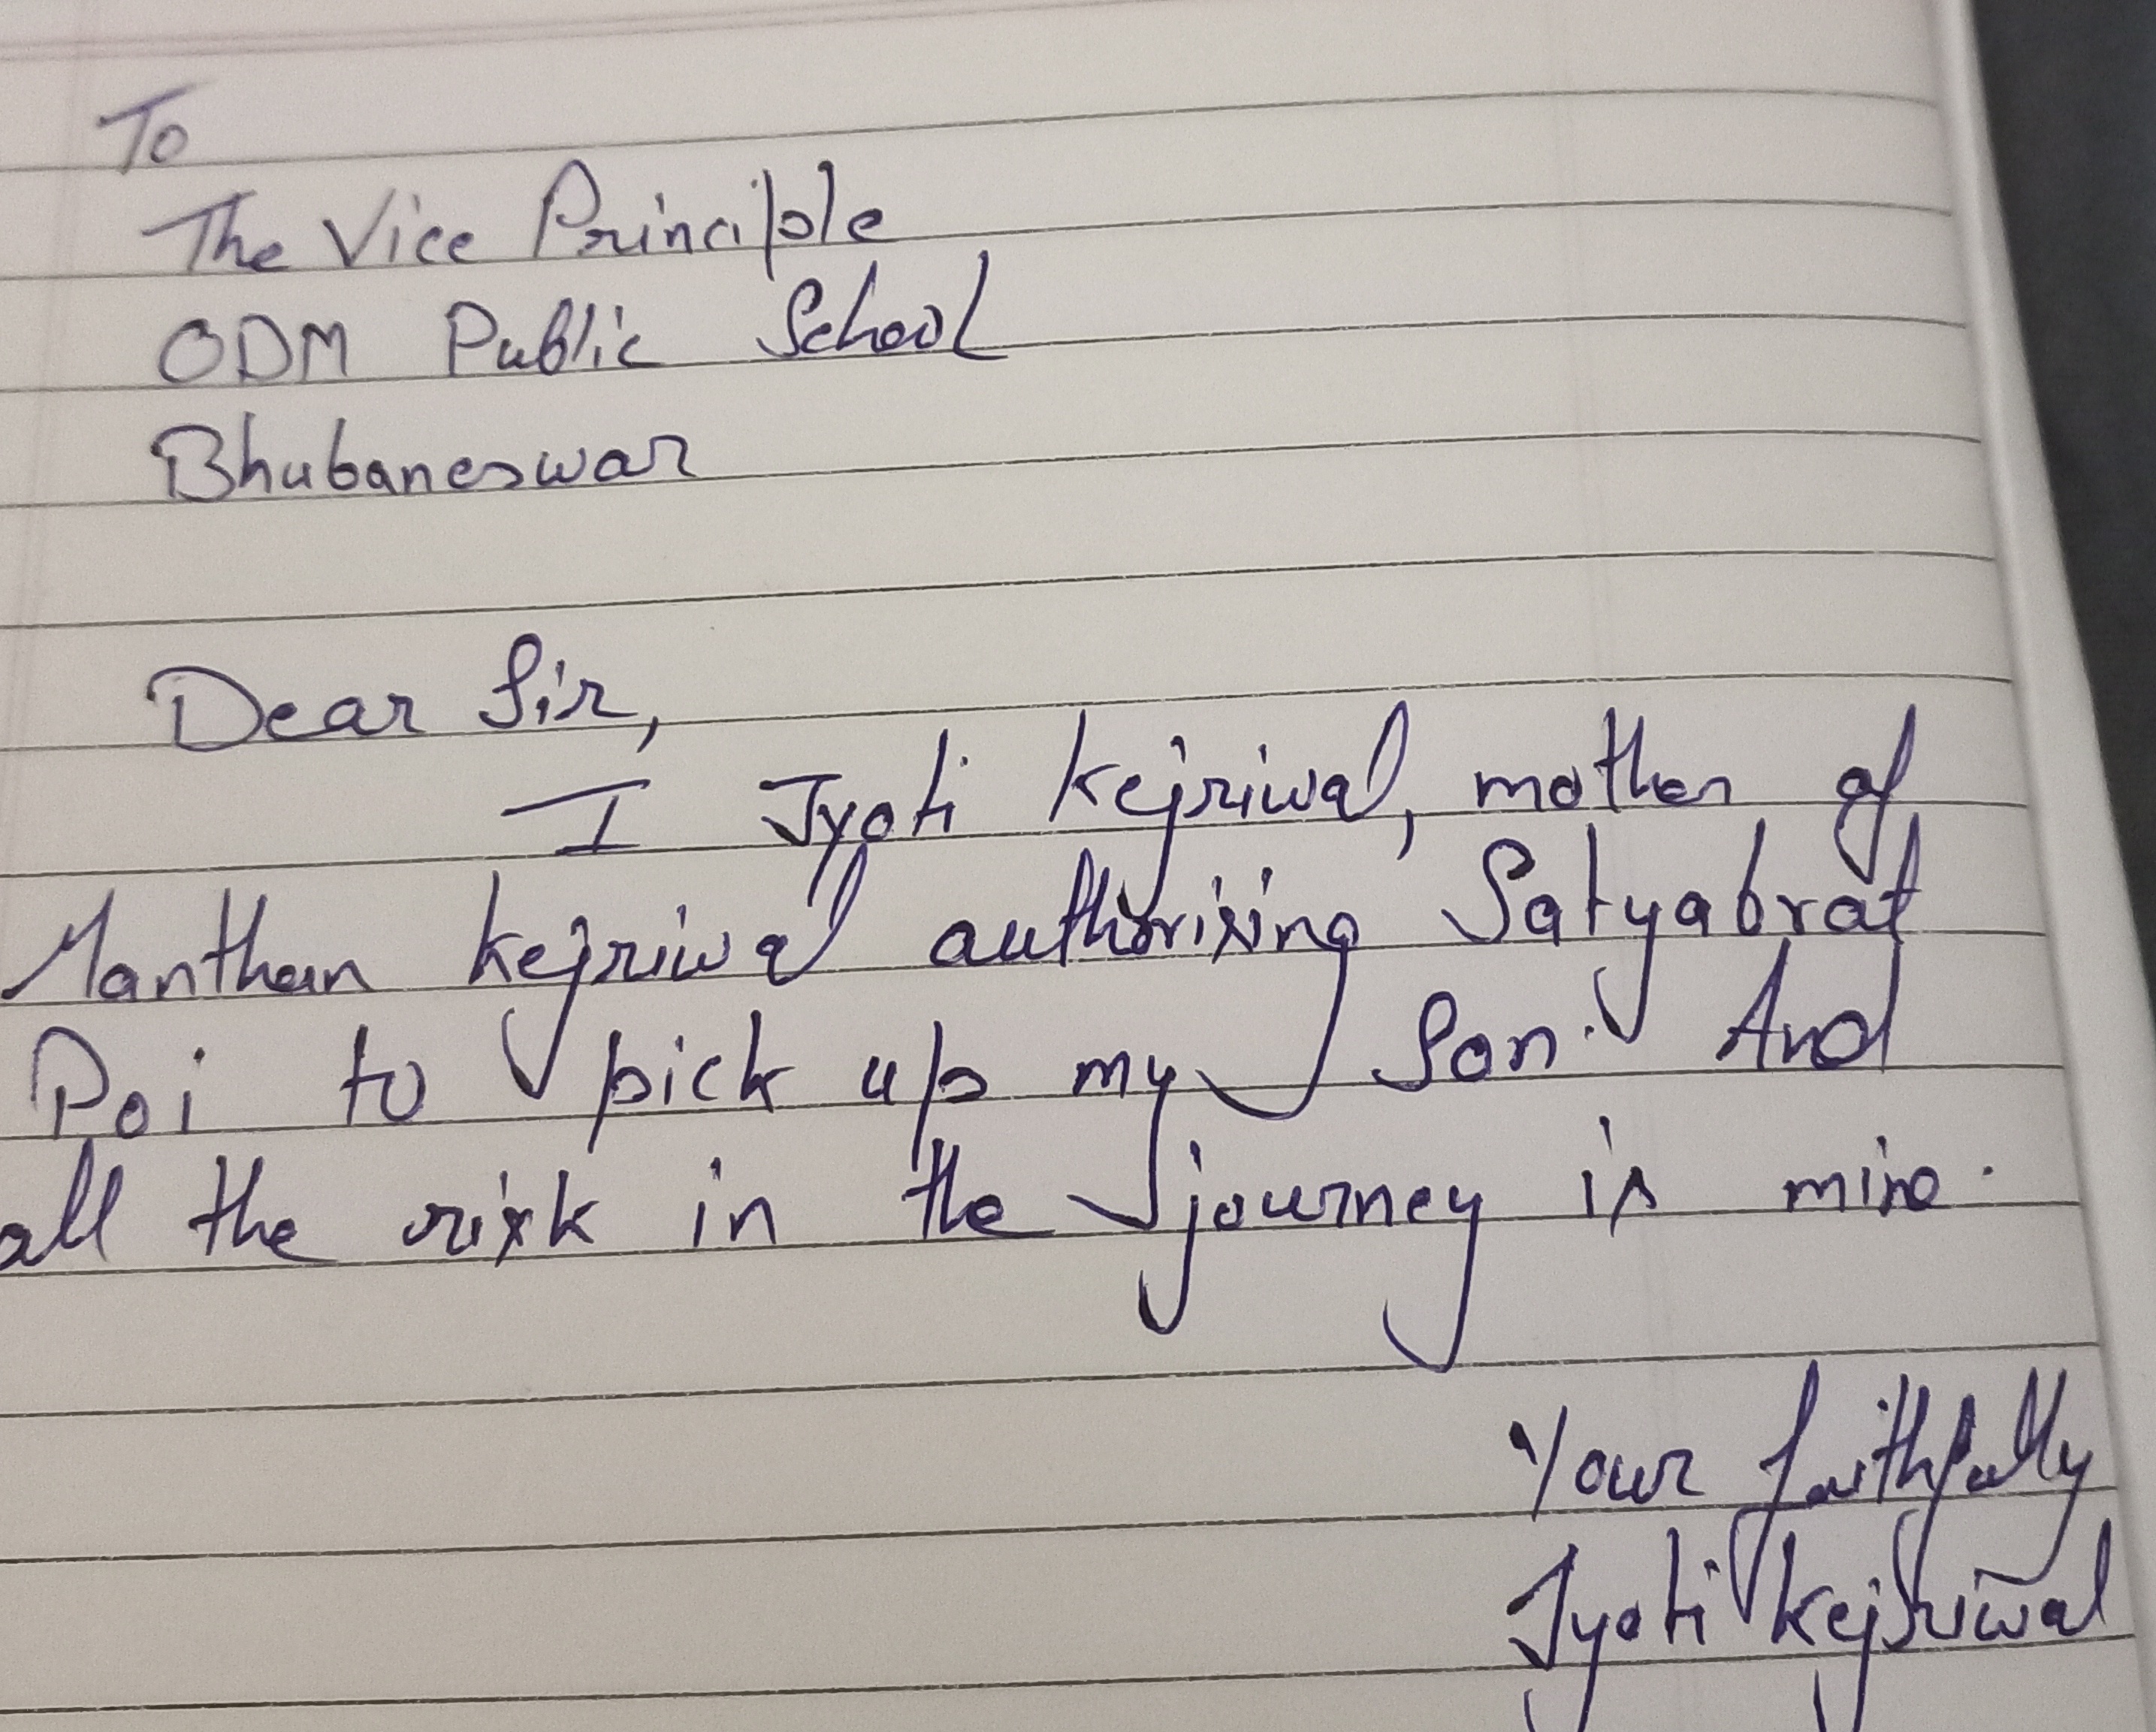 To
The Vice Principle
ODM Public School
Bhubaneswar
Dear Sir,
I Jyoti kejriwal, mother of
Manthan kejriwal authorising Satyabrat
Poi to pick up my Son. And
all the risk in the journey is mine.
Your faithfully
Jyoti kejriwal